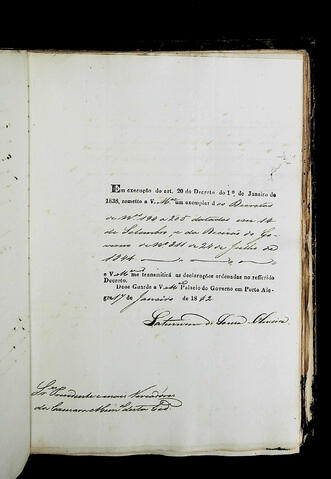 Em execução do art. 20 do Decreto do 1º de Janeiro de
1838, remetto a V. Mces um exemplar dos Decretos
de Nos 199 a 205 datados em 14
de Setembro, e da Decisão do Go-
verno de Nº 311 de 24 de Julho de
1841
e V. Mces me transmittirá as declarações ordenadas no referido
Decreto.
Deos Guarde a V. Mces Palacio do Governo em Porto Ale-
gre 17 de Janeiro de 1842
Saturnino de Souza e Oliveira
Srs Presidente e mais Vereadores
da Camara Munal desta Cide